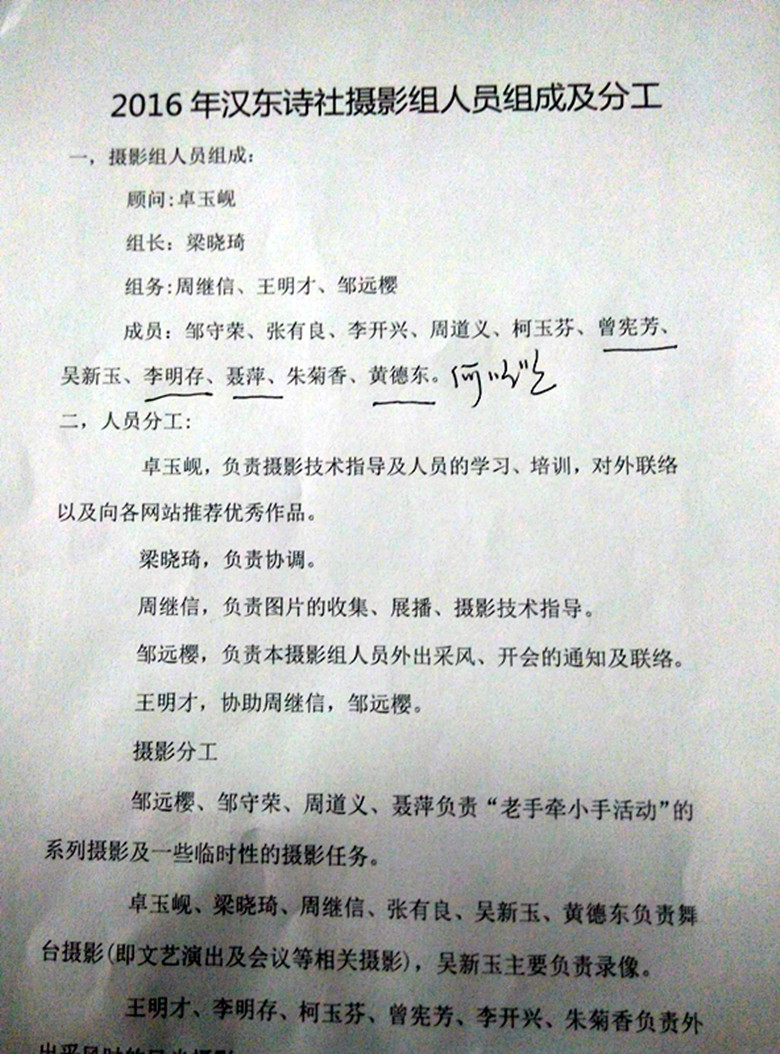 2016年汉东诗社摄影组人员组成及分工
一，摄影组人员组成：
顾问:卓玉岘
组长：梁晓琦
组务:周继信、王明才、邹远樱
成员：邹守荣、张有良、李开兴、周道义、柯玉芬、曾宪芳、
吴新玉、李明存、聂萍、朱菊香、黄德东。何
二，人员分工:
卓玉岘，负责摄影技术指导及人员的学习、培训，对外联络
以及向各网站推荐优秀作品。
梁晓琦，负责协调。
周继信，负责图片的收集、展播、摄影技术指导。
邹远樱，负责本摄影组人员外出采风、开会的通知及联络。
王明才，协助周继信，邹远樱。
摄影分工
邹远樱、邹守荣、周道义、聂萍负责“老手牵小手活动”的
系列摄影及一些临时性的摄影任务。
卓玉岘、梁晓琦、周继信、张有良、吴新玉、黄德东负责舞
台摄影(即文艺演出及会议等相关摄影)，吴新玉主要负责录像。
王明才、李明存、柯玉芬、曾宪芳、李开兴、朱菊香负责外
出采风时的风光摄影